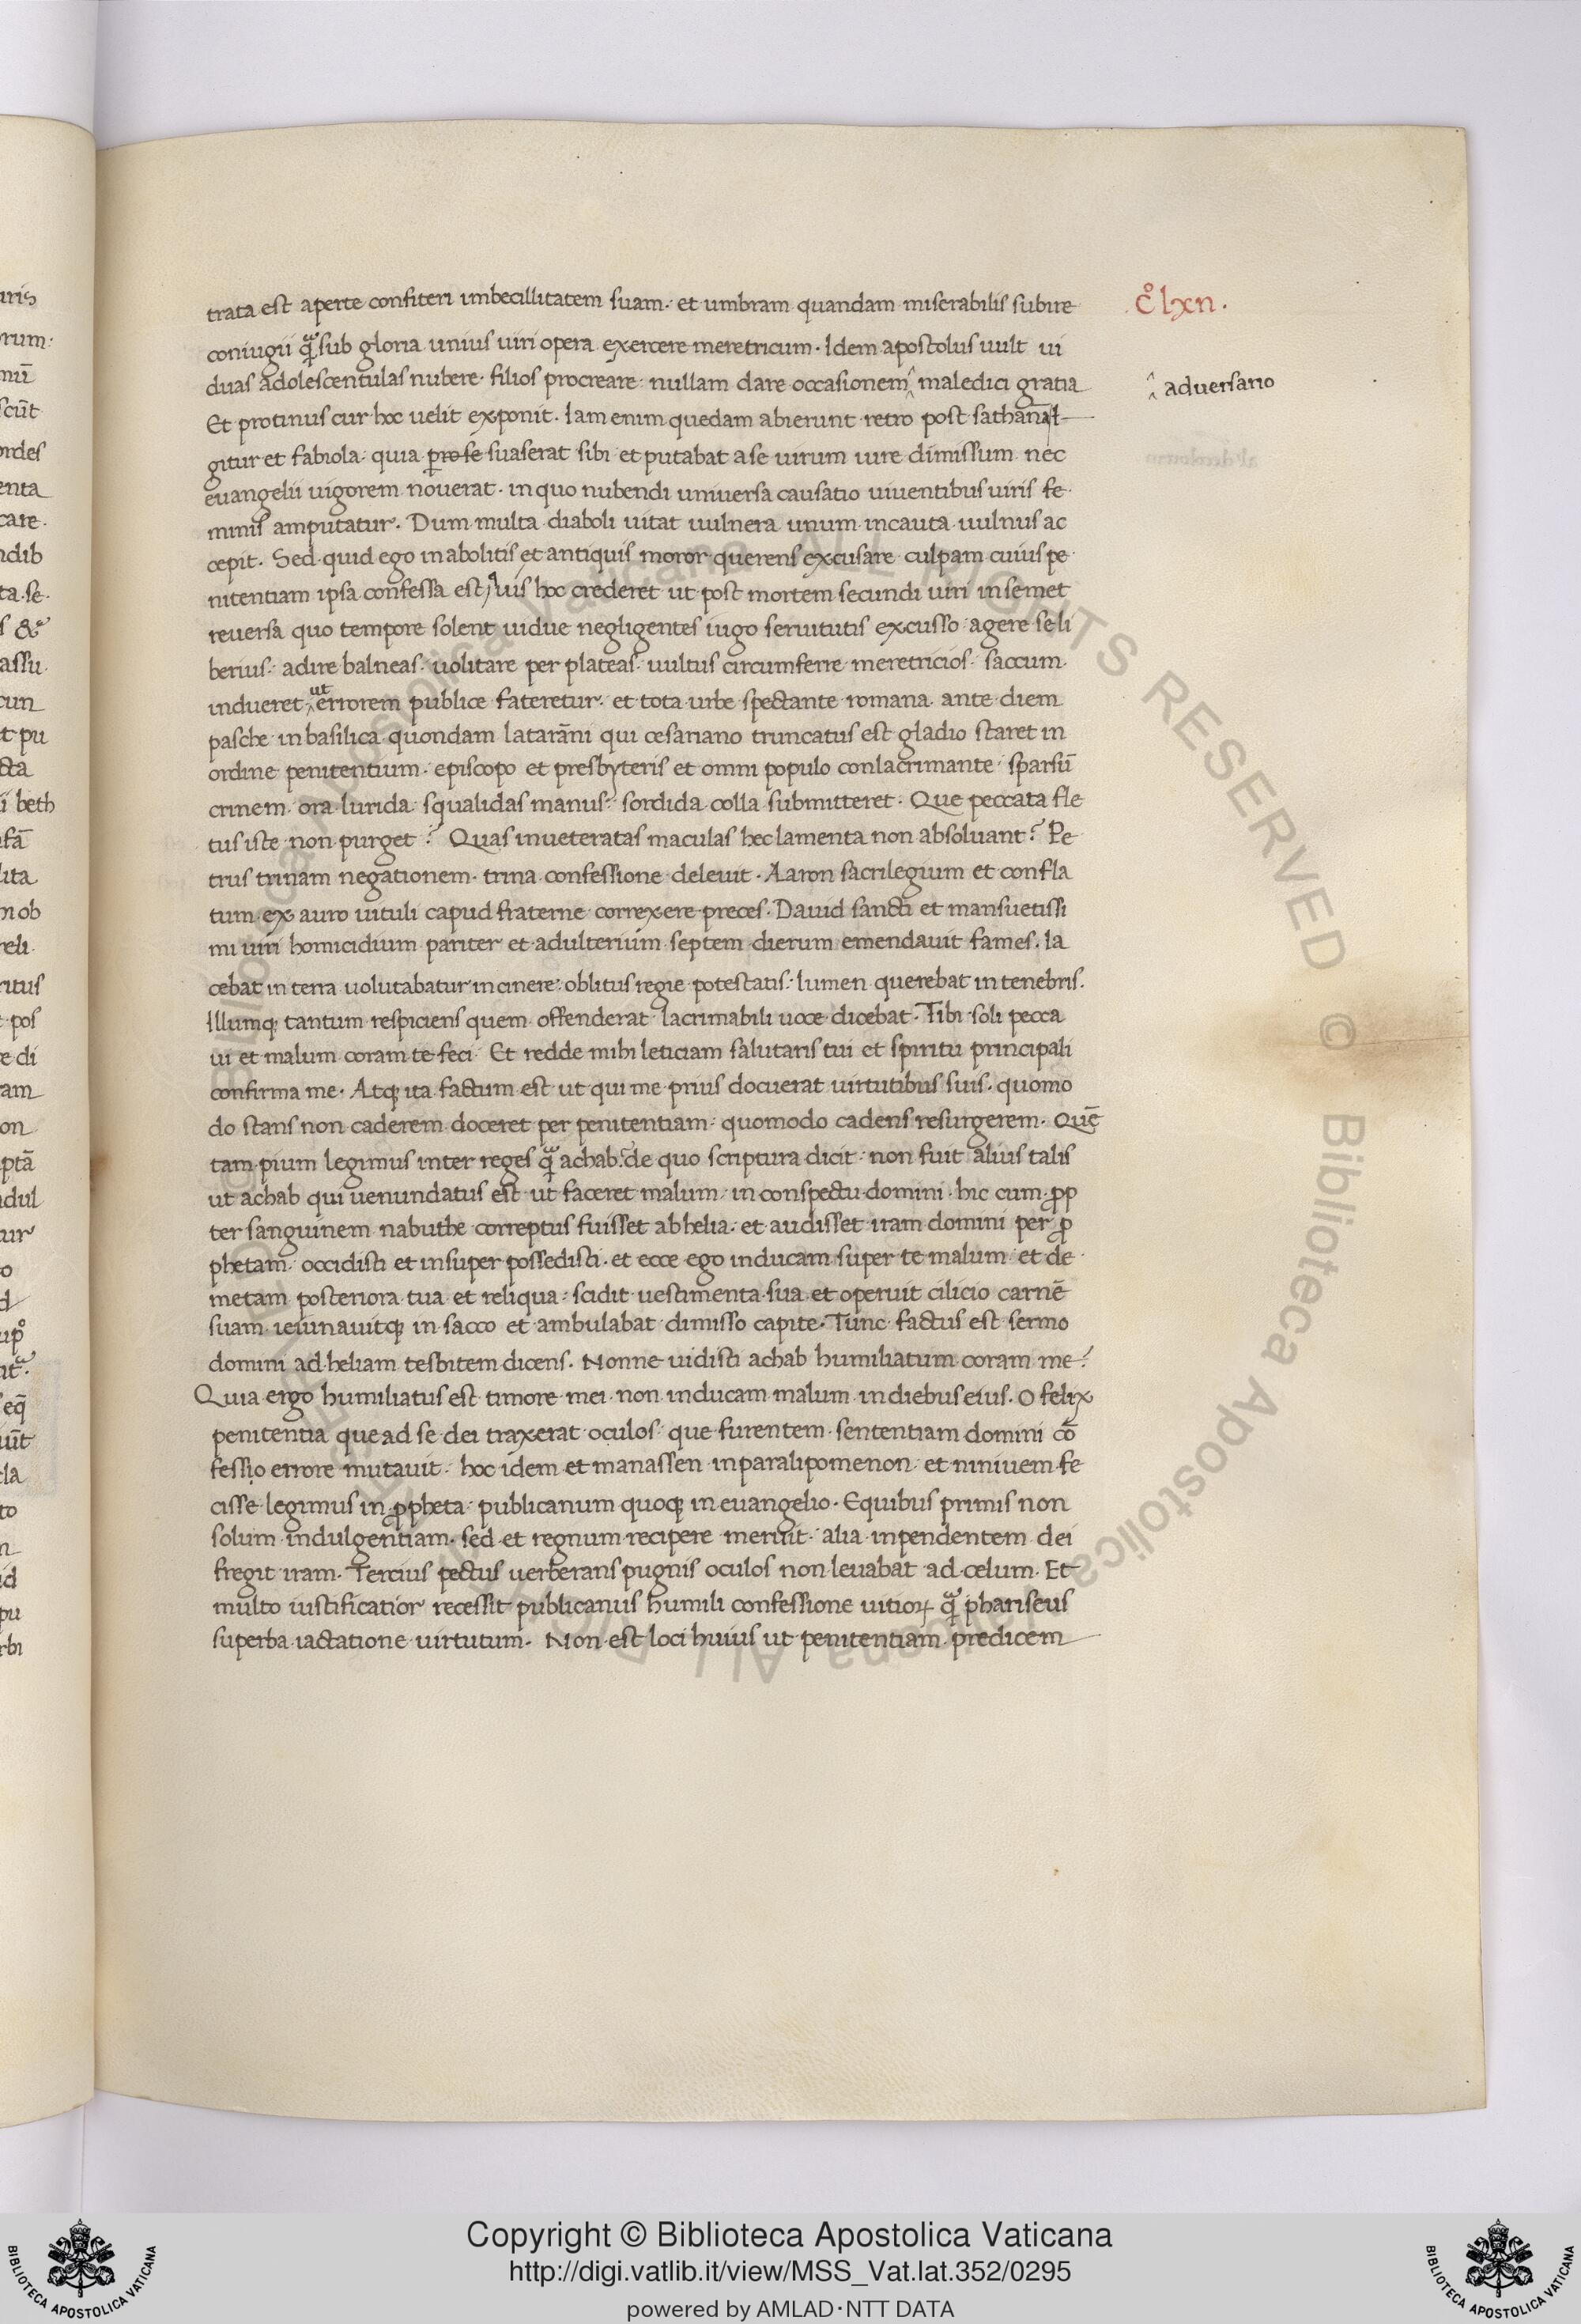 trata est aperte confiteri imbecillitatem suam. et umbram quandam miserabilis subire
c̊ lxn.
coniugii qͣ sub gloria unius uiri opera exercere meretricum. Idem apostolus uult ui
duas adolescentulas nubere. filios procreare. nullam dare occasionem maledici gratia
aduersario
Et protinus cur hoc uelit exponit. Iam enim quedam abierunt retro post
gitur et fabiola. quia suaserat sibi et putabat a se uirum iure dimissum nec
euangelii uigorem nouerat. in quo nubendi uniuersa causatio uiuentibus uiris fe
minis amputatur. Dum multa diaboli uitat uulnera unum incauta uulnus ac
cepit. Sed quid ego in abolitis et antiquis moror querens excusare culpam cuius pe
nitentiam ipsa confessa est hoc crederet ut post mortem secundi uiri in semet
reuersa quo tempore solent uidue negligentes iugo seruitutis excusso agere se li
berius. adire balneas. uolitare per plateas. uultus circumferre meretricios. saccum
indueret ut errorem publice fateretur. et tota urbe spectante romana ante diem
pasche in basilica quondam latarāni qui cesariano truncatus est gladio staret in
ordine penitentium. episcopo et presbyteris et omni populo conlacrimante sparsū
crinem ora lurida squalidas manus: sordida colla submitteret. Que peccata fle
tus iste non purget? Quas inueteratas maculas hec lamenta non absoluant? Pe
trus trinam negationem. trina confessione deleuit. Aaron sacrilegium et confla
tum ex auro uituli capud fraterne correxere preces. Dauid sancti et mansuetissi
mi uiri homicidium pariter et adulterium septem dierum emendauit fames. Ia
cebat in terra uolutabatur in cinere: oblitus regie potestatis: lumen querebat in tenebris.
Illumq; tantum respiciens quem offenderat lacrimabili uoce dicebat. Tibi soli pecca
ui et malum coram te feci. Et redde mihi leticiam salutaris tui et spiritu principali
confirma me. Atq; ita factum est ut qui me prius docuerat uirtutibus suis. quomo
do stans non caderem doceret per penitentiam: quomodo cadens resurgerem. Quē
tam pium legimus inter reges qͣ achab: de quo scriptura dicit: non fuit alius talis
ut achab qui uenundatus est ut faceret malum in conspectu domini. hic cum ꝓp
ter sanguinem nabuthe correptus fuisset ab helia. et audisset iram domini per ꝓ
phetam: occidisti et insuper possedisti. et ecce ego inducam super te malum et de
metam posteriora tua et reliqua: scidit uestimenta sua et operuit cilicio carnē
suam ieiunauitq; in sacco et ambulabat dimisso capite. Tunc factus est sermo
domini ad heliam tesbitem dicens. Nonne uidisti achab humiliatum coram me?
Quia ergo humiliatus est timore mei non inducam malum in diebus eius. O felix
penitentia que ad se dei traxerat oculos: que furentem sententiam domini cō
fessio errore mutauit. hoc idem et manassen in paralipomenon. et niniuem fe
cisse legimus in ꝓpheta: publicanum quoq; in euangelio. Equibus primis non
solum indulgentiam. sed et regnum recipere meruit. alia inpendentem dei
fregit iram. Tercius pectus uerberans pugnis oculos non leuabat ad celum. Et
multo iustificatior recessit publicanus humili confessione uitioꝝ qͣ phariseus
superba iactatione uirtutum. Non est loci huius ut penitentiam predicem
Copyright © Biblioteca Apostolica Vaticana
http://digi.vatlib.it/view/MSS_Vat.lat.352/0295
powered by AMLAD·NTT DATA